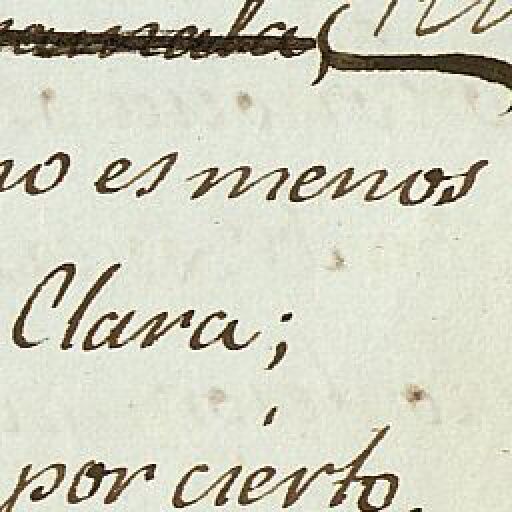 no es menos
Clara;
por cierto.